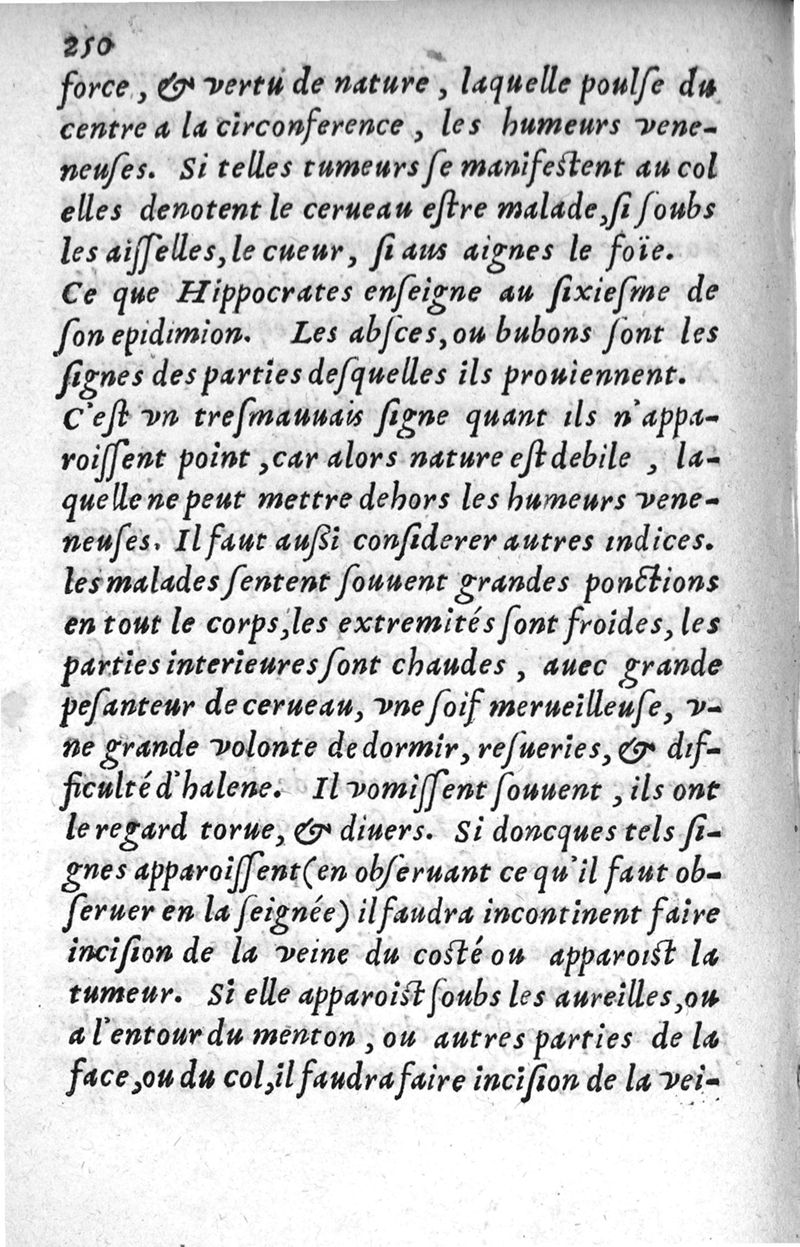 250
force, & vertu de nature, laquelle poulſe du
centre a la circonference, les humeurs vene-
neuſes. Si telles tumeurs ſe manifeſtent au col
elles denotent le cerueau eſtre malade, ſi ſoubs
les aiſſelles, le cueur, ſi aus aignes le foïe.
Ce que Hippocrates enſeigne au ſixieſme de
ſon epidimion. Les abſces, ou bubons ſont les
ſignes des parties deſquelles ils prouiennent.
C'eſt vn treſmauuais ſigne quant ils n'appa-
roiſſent point, car alors nature eſt debile, la-
quelle ne peut mettre dehors les humeurs vene-
neuſes. Il faut auſſi conſiderer autres indices.
les malades ſentent ſouuent grandes ponctions
en tout le corps, les extremités ſont froides, les
parties interieures ſont chaudes, auec grande
peſanteur de cerueau, vne ſoif merueilleuſe, v-
ne grande volonte de dormir, reſueries, & dif-
ficulté d'halene. Il vomiſſent ſouuent, ils ont
le regard torue, & diuers. Si doncques tels ſi-
gnes apparoiſſent (en obſeruant ce qu'il faut ob-
ſeruer en la ſeignée) il faudra incontinent faire
inciſion de la veine du coſté ou apparoiſt la
tumeur. Si elle apparoiſt ſoubs les aureilles, ou
a l'entour du menton, ou autres parties de la
face, ou du col, il faudra faire inciſion de la vei-